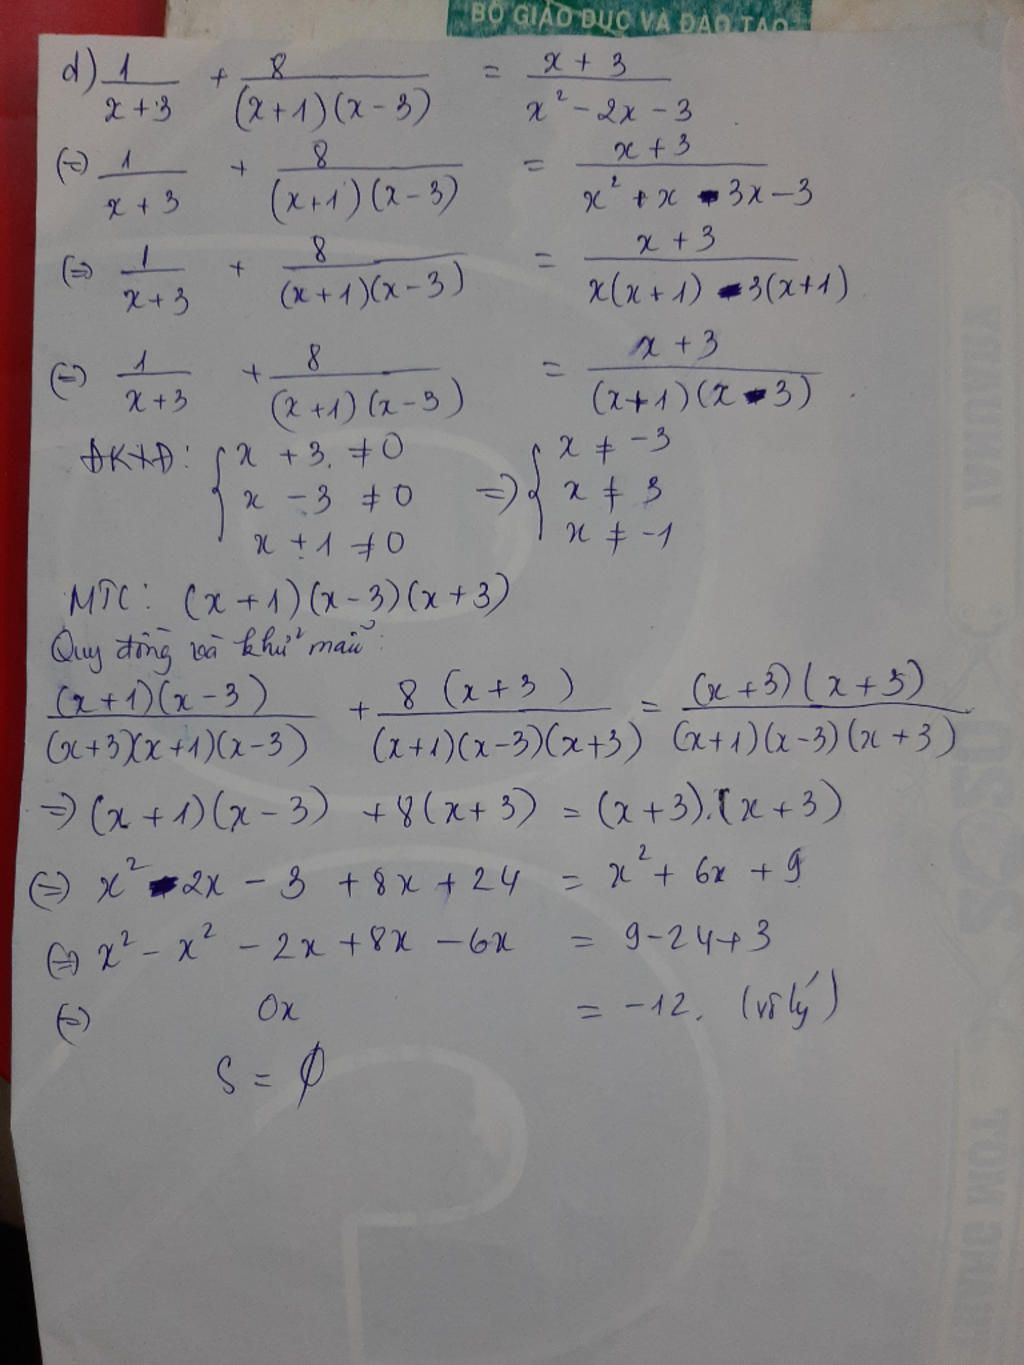 BỘ GIÁO DỤC VÀ ĐÀO TẠO
d) 1/(x+3) + 8/((x+1)(x-3)) = (x+3)/(x²-2x-3)
(=) 1/(x+3) + 8/((x+1)(x-3)) = (x+3)/(x²+x-3x-3)
(=) 1/(x+3) + 8/((x+1)(x-3)) = (x+3)/(x(x+1)-3(x+1))
(=) 1/(x+3) + 8/((x+1)(x-3)) = (x+3)/((x+1)(x-3))
ĐKXĐ: { x+3 ≠ 0 => { x ≠ -3
x-3 ≠ 0 x ≠ 3
x+1 ≠ 0 x ≠ -1
MTC: (x+1)(x-3)(x+3)
Quy đồng và khử mẫu:
(x+1)(x-3)/((x+3)(x+1)(x-3)) + 8(x+3)/((x+1)(x-3)(x+3)) = (x+3)(x+3)/((x+1)(x-3)(x+3))
=> (x+1)(x-3) + 8(x+3) = (x+3).(x+3)
(=) x²-2x-3+8x+24 = x²+6x+9
(=) x²-x²-2x+8x-6x = 9-24+3
(=) 0x = -12. (vô lý)
S = ∅